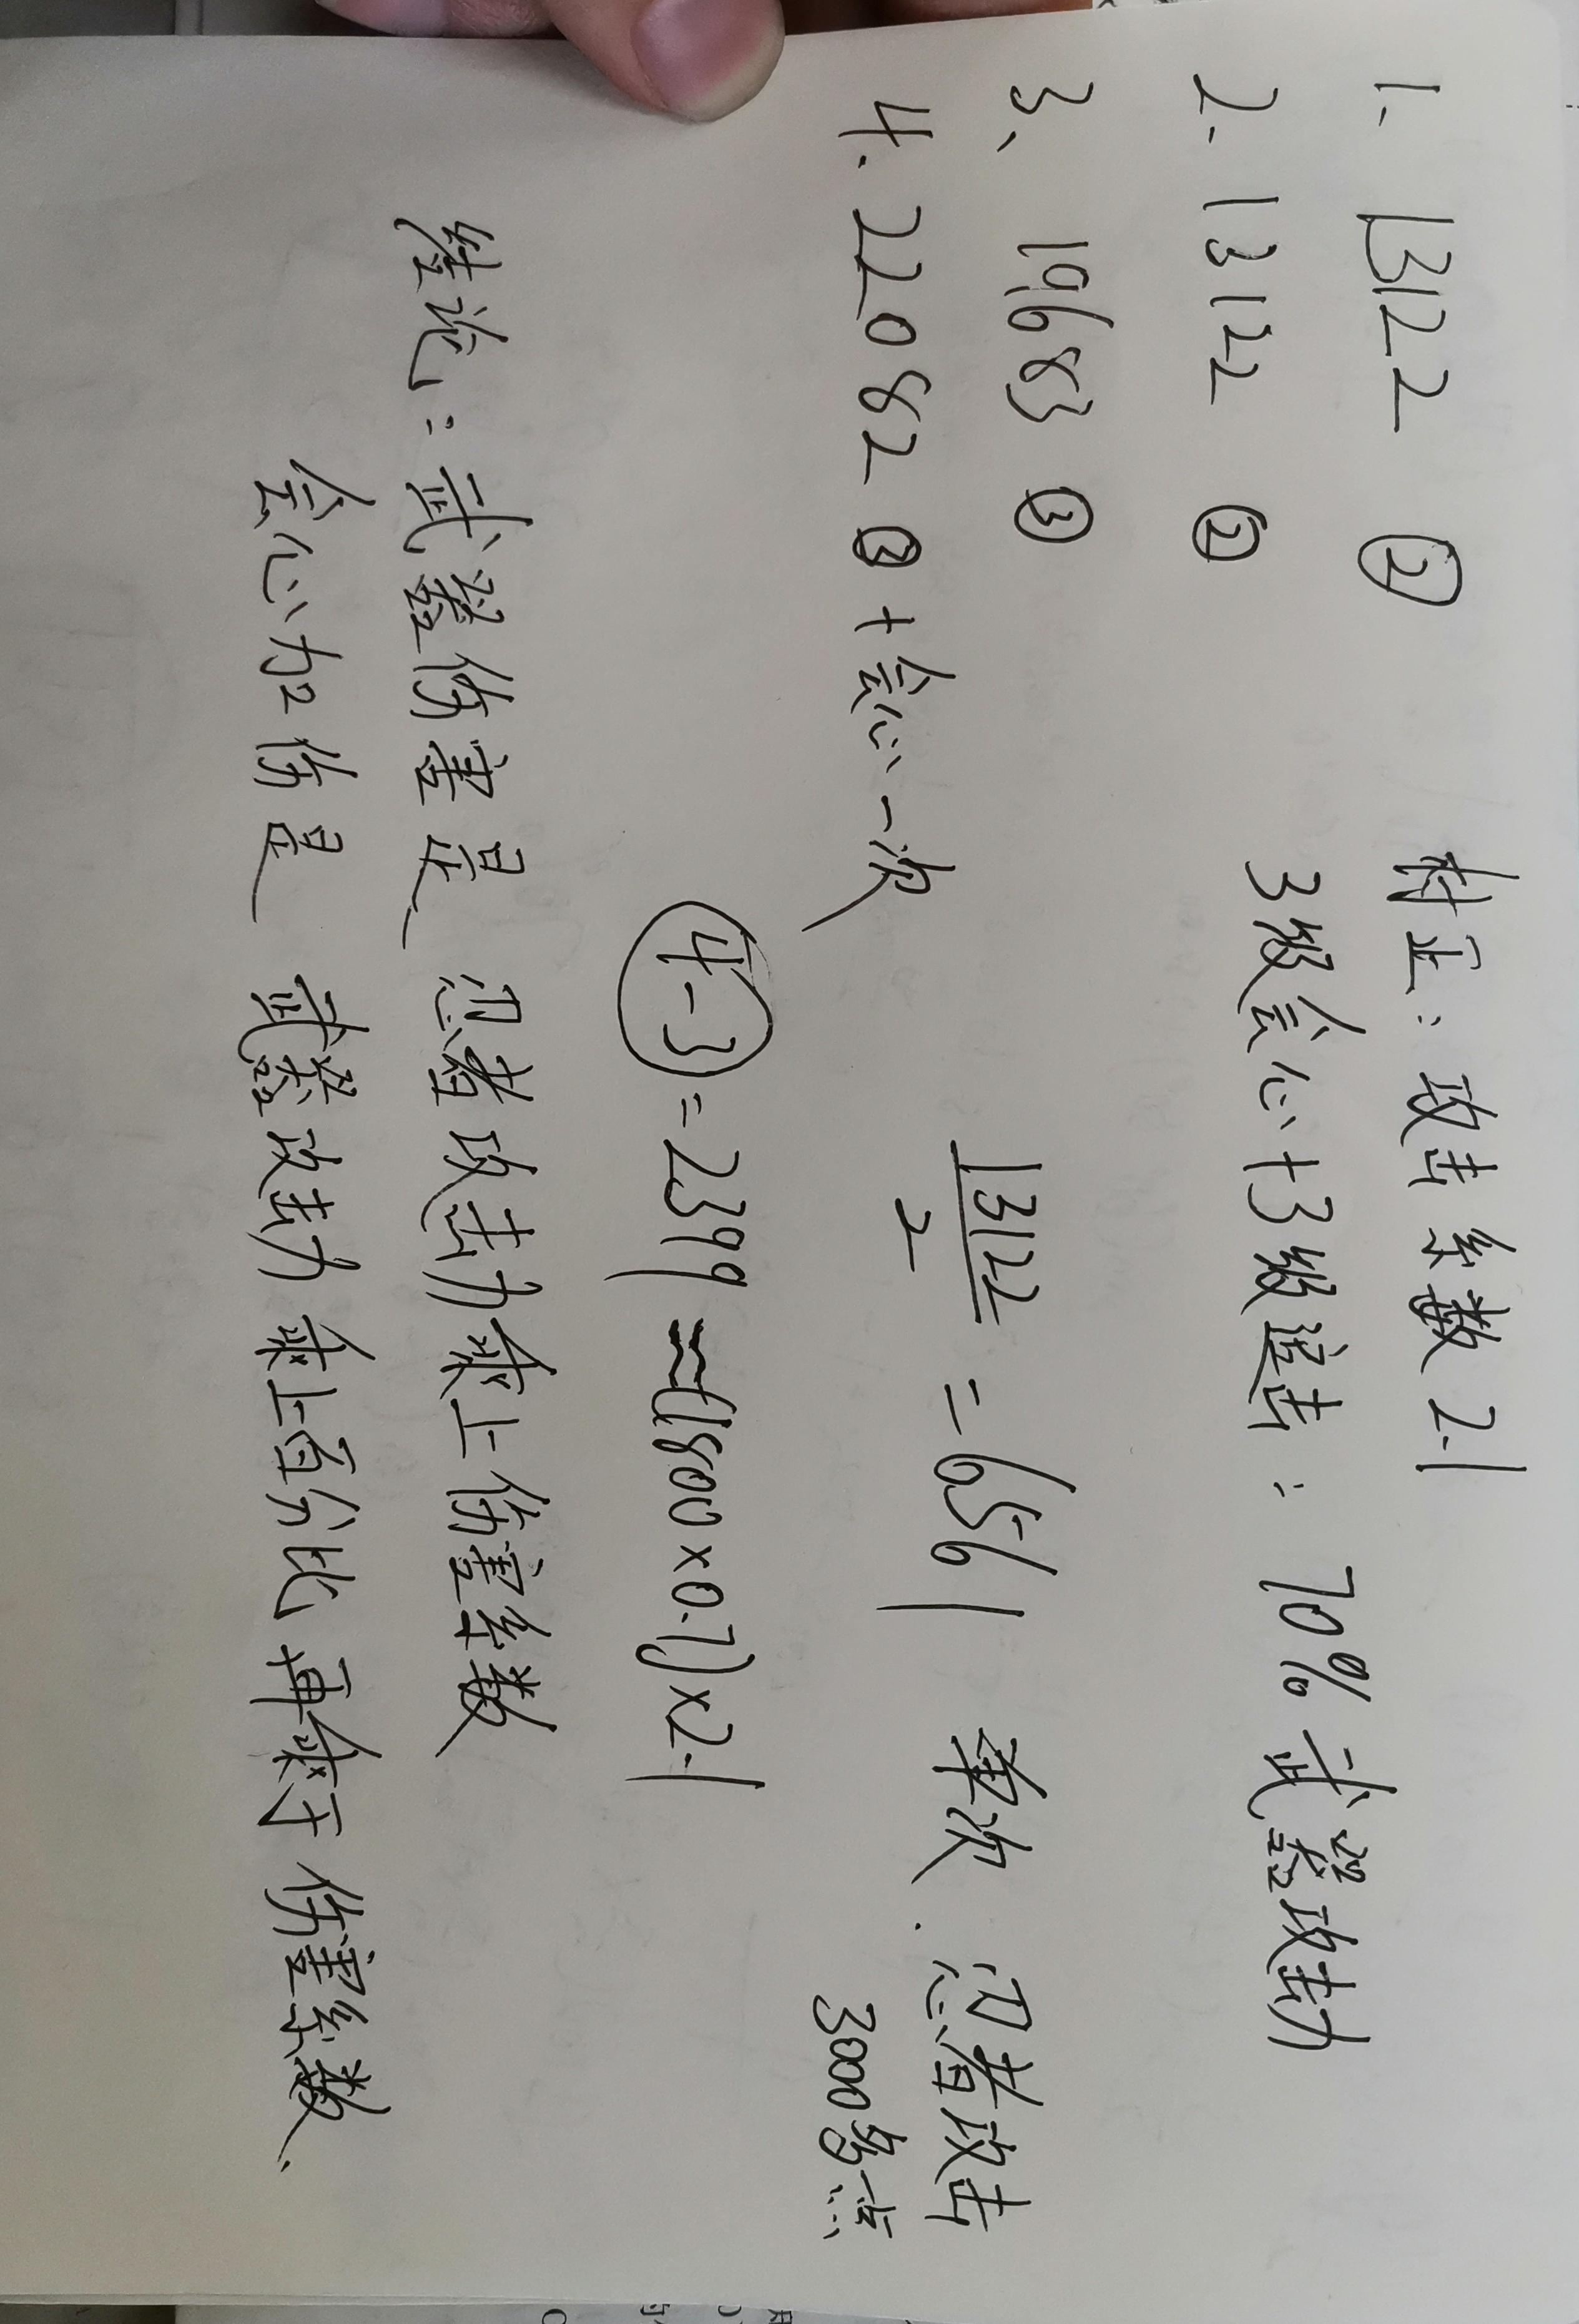 1、13122 ②
村正：攻击系数2.1
2. 13122 ②
3级会心+3级追击：70%武器攻击力
3、19683 ③
4. 22082 ③+会心一次
13122/2 = 6561 单次. 忍者攻击3000多点
4-3=2399≈(1800×0.7)×2.1
结论：武器伤害是 忍者攻击力乘上伤害系数
会心加伤是 武器攻击力乘上百分比 再乘于 伤害系数、